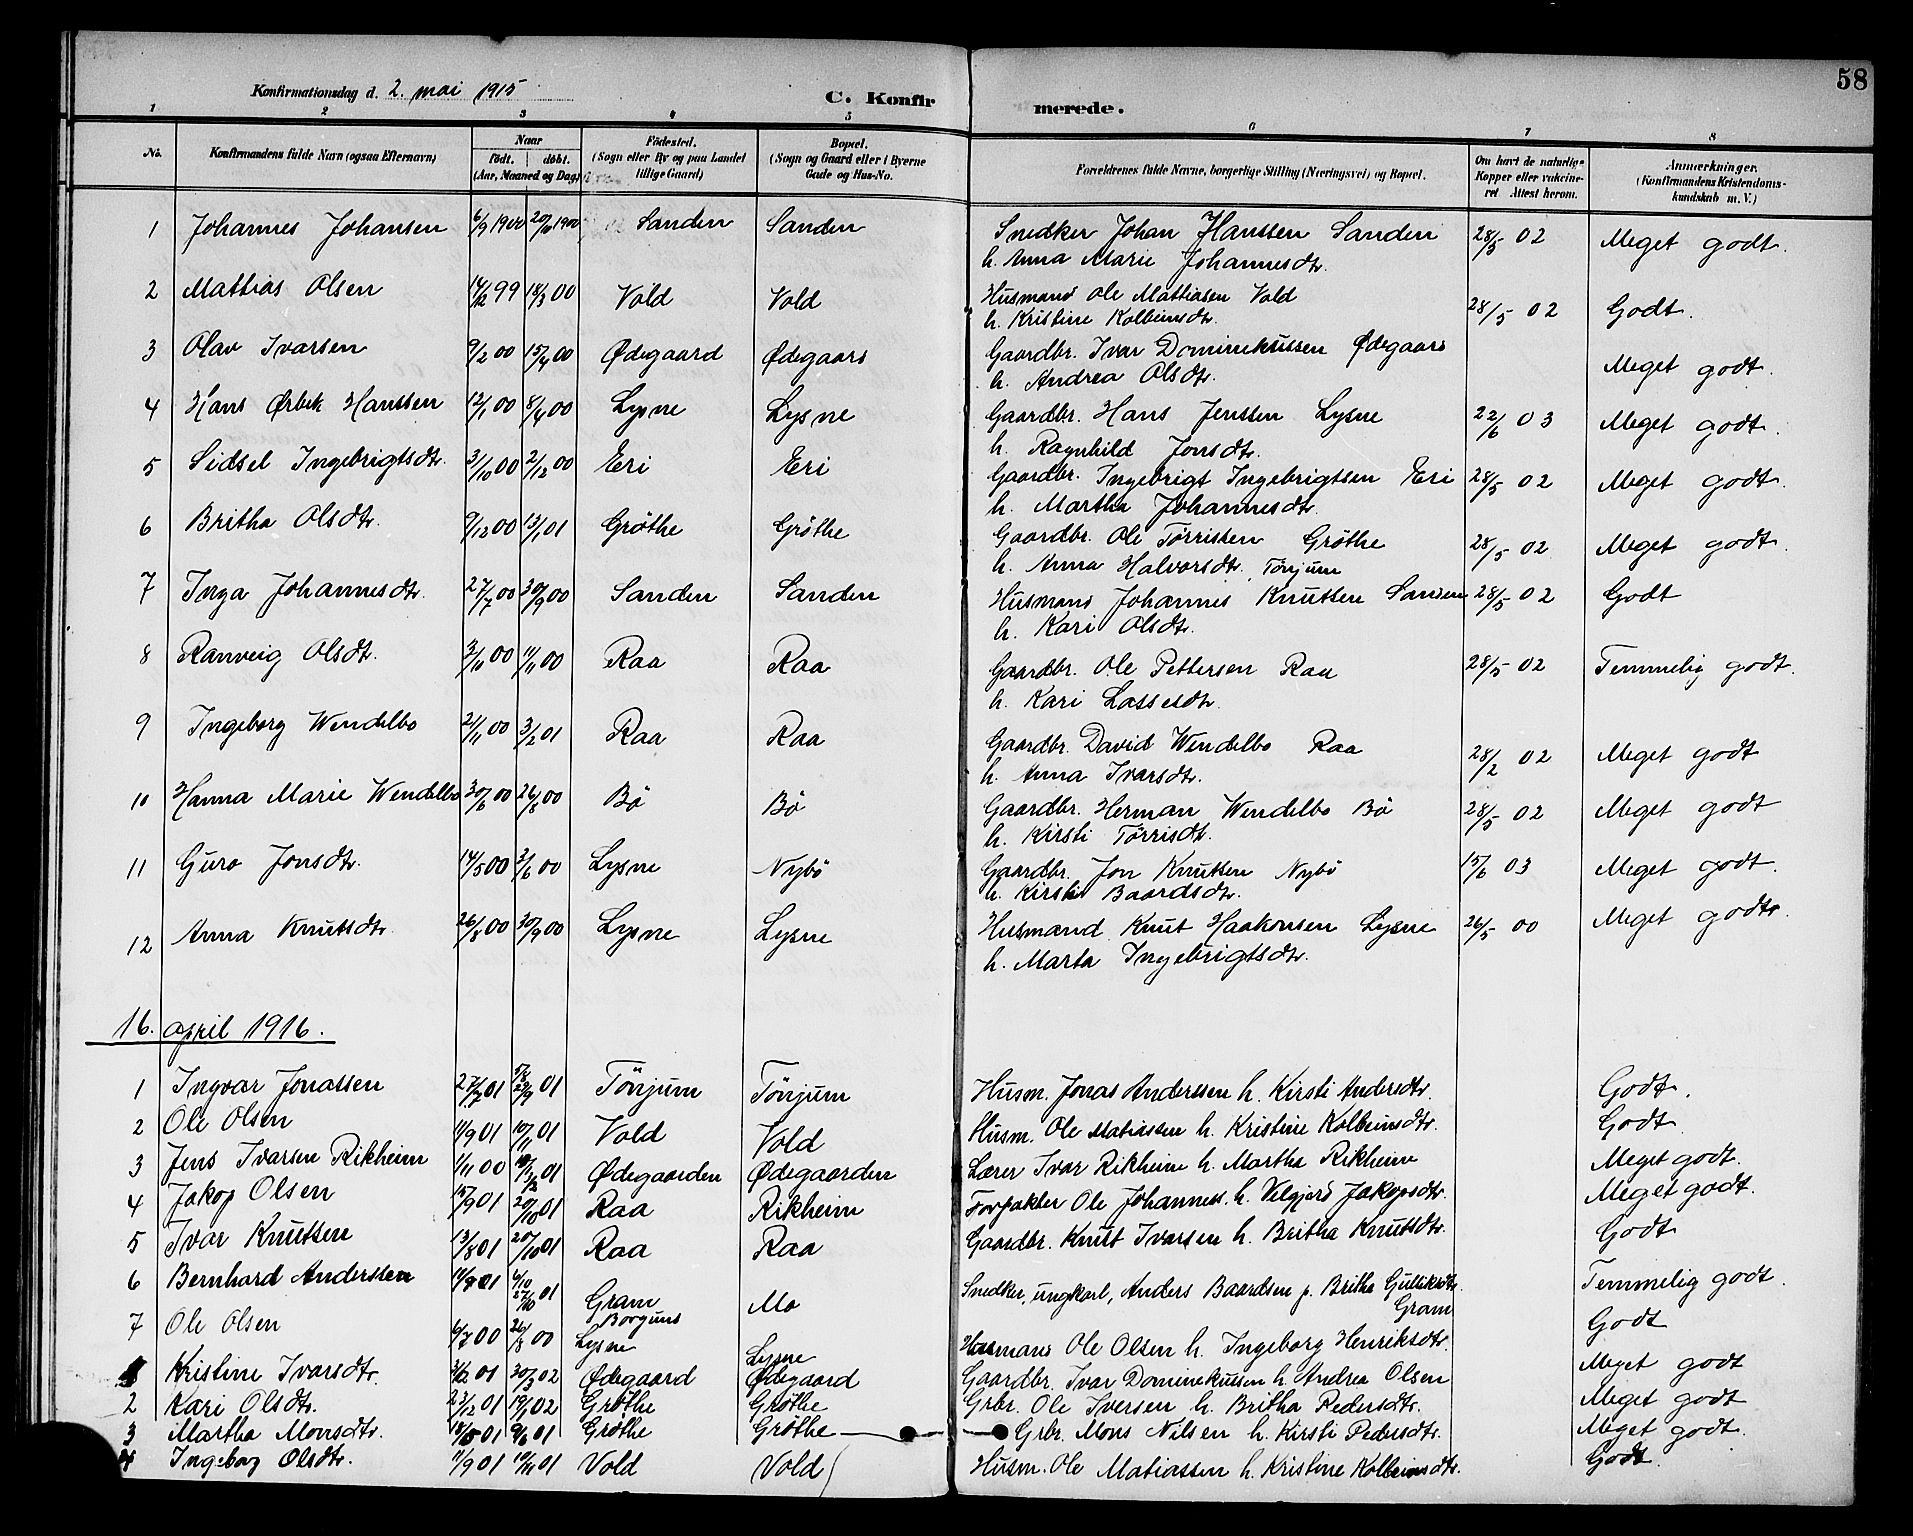 58
Konfirmationsdag d. 2. mai 1915
C. Konfirmerede.
1 2 3 4 5 6 7 8
No. Konfirmandens fulde Navn (ogsaa Efternavn) Naar födt. döbt. (Aar, Maaned og Dag) Födested. (Sogn eller By og paa Landet tillige Gaard) Bopæl. (Sogn og Gaard eller i Byerne Gade og Hus-No. Forældrenes fulde Navne, borgerlige Stilling (Næringsvei) og Bopæl. Om havt de naturlige Kopper eller vakcineret Attest herom. Anmærkninger. (Konfirmandens Kristendomskundskab m. V.)
1 Johannes Johansen 6/9 1900 20/10 1900 Sanden Sanden Snedker Johan Hanssen Sanden 28/5 02 Meget godt.
h. Anna Marie Johannesdtr.
2 Mattias Olsen 14/12 99 18/3 00 Vold Vold Husmand Ole Mattiasen Vold 28/5 02 Godt.
h. Kristine Kolbeinsdtr.
3 Olav Ivarsen 9/2 00 15/4 00 Ødegaard Ødegaard Gaardbr. Ivar Dominikussen Ødegaard Meget godt.
h. Andrea Olsdtr.
4 Hans Ørbek Hanssen 12/1 00 8/4 00 Lysne Lysne Gaardbr. Hans Jenssen Lysne 22/6 03 Meget godt.
h. Ragnhild Jonsdtr.
5 Sidsel Ingebrigtsdtr. 3/10 00 2/12 00 Eri Eri Gaardbr. Ingebrigt Ingebrigtsen Eri 28/5 02 Meget godt.
h. Martha Johannesdtr.
6 Britha Olsdtr. 9/12 00 13/1 01 Gröthe Gröthe Gaardbr. Ole Törrissen Gröthe 28/5 02 Meget godt.
h. Anna Halvorsdtr. Tönjum
7 Inga Johannesdtr. 27/7 00 30/9 00 Sanden Sanden Husmand Johannes Knutsen Sanden 28/5 02 Godt
h. Kari Olsdtr.
8 Ranveig Olsdtr. 3/11 00 11/11 00 Raa Raa Gaardbr. Ole Pettersen Raa 28/5 02 Temmelig godt.
h. Kari Lassesdtr.
9 Ingeborg Wendelbo 21/11 00 3/2 01 Raa Raa Gaardbr. David Wendelbo Raa 28/2 02 Meget godt
h. Anna Ivarsdtr.
10 Hanna Marie Wendelbo 30/6 00 26/8 00 Bö Bö Gaardbr. Herman Wendelbo Bö 28/5 02 Meget godt
h. Kirsti Törrisdtr.
11 Guro Jonsdtr. 14/5 00 3/6 00 Lysne Nybö Gaardbr. Jon Knutsen Nybö 15/6 03 Meget godt.
h. Kirsti Baardsdtr.
12 Anna Knutsdtr. 26/8 00 30/9 00 Lysne Lysne Husmand Knut Haakonsen Lysne 26/5 00 Meget godt.
h. Marta Ingebrigtsdtr.
16. april 1916.
1 Ingvar Jonassen 27/7 01 5/8 29/9 01 Tönjum Tönjum Husm. Jonas Anderssen h. Kirsti Andersdtr. Godt.
2 Ole Olsen 11/9 01 10/11 01 Vold Vold Husm. Ole Matiassen h. Kristine Kolbeinsdtr. Godt.
3 Jens Ivarsen Rikheim 1/11 00 01 Ødegaarden Ødegaarden Lærer Ivar Rikheim h. Martha Rikheim Meget godt.
4 Jakop Olsen 15/9 01 20/10 01 Raa Rikheim Forpakter Ole Johanness. h. Velgjerd Jakopsdtr. Meget godt.
5 Ivar Knutsen 13/8 01 20/10 01 Raa Raa Gaardbr. Knut Ivarsen h. Britha Knutsdtr. Godt
6 Bernhard Anderssen 01 6/10 27/10 01 Gram Borgund Mo Snedker, ungkarl, Anders Baardsen p. Britha Gulliksdtr. Gram Temmelig godt.
7 Ole Olsen 6/7 00 26/8 00 Lysne Lysne Husmand Ole Olsen h. Ingeborg Henriksdtr. Godt
1 Kristine Ivarsdtr. 01 30/3 02 Ødegaard Ødegaard Gaardbr. Ivar Dominikussen h. Andrea Olsen Meget godt
2 Kari Olsdtr. 23/12 01 19/1 02 Gröthe Gröthe Grbr. Ole Iversen h. Britha Pedersdtr. Meget godt
3 Martha Monsdtr. 18/5 01 9/6 01 Gröthe Gröthe Grbr. Mons Nilsen h. Kirsti Pedersdtr. Meget godt.
4 Ingeborg Olsdtr. 11/9 01 10/11 01 Vold Vold Husm. Ole Matiassen h. Kristine Kolbeinsdtr. Godt.